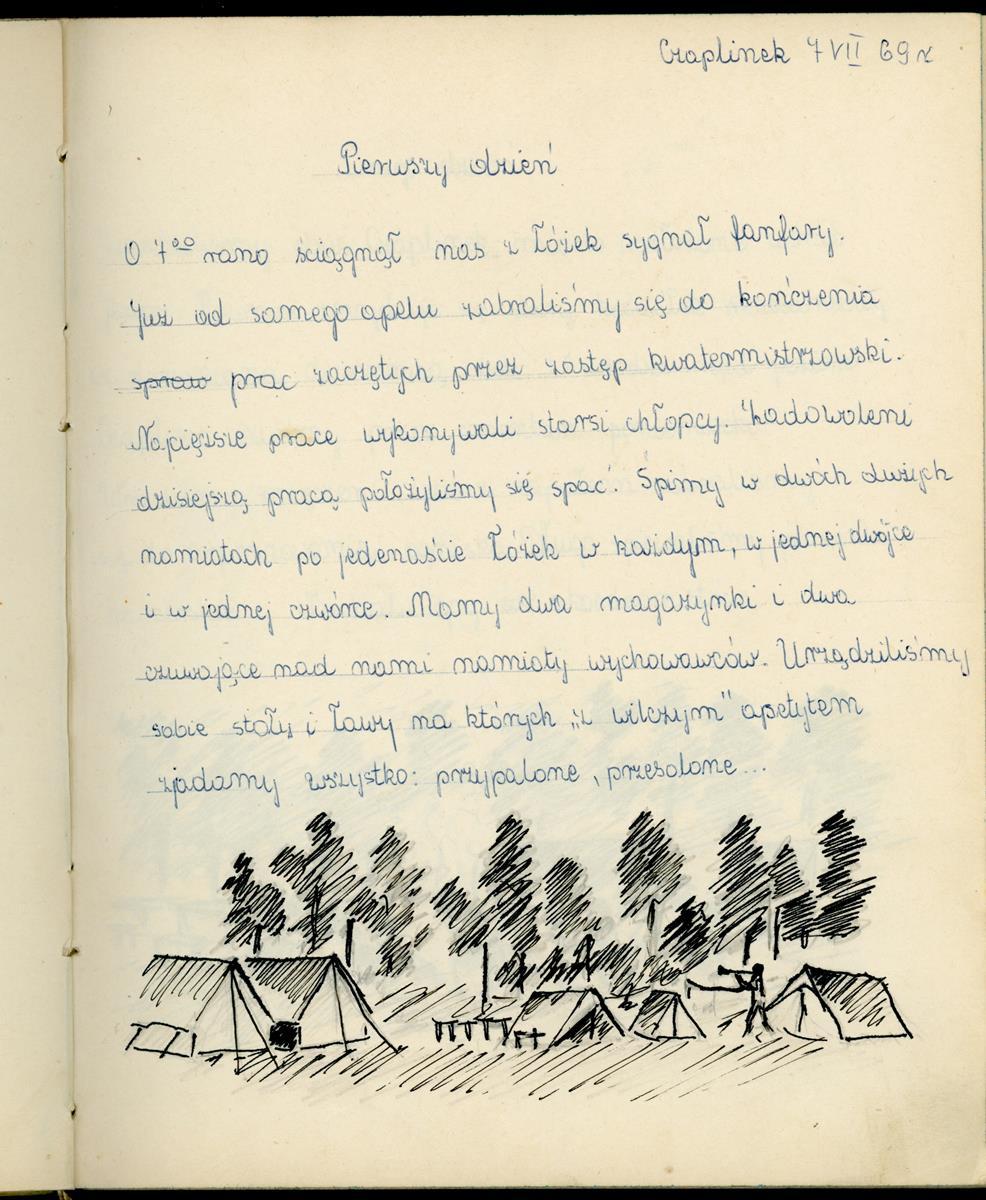 Czaplinek 7 VII 69 r
Pierwszy dzień
O 7⁰⁰ rano ściągnął nas z łóżek sygnał fanfary.
Już od samego apelu zabraliśmy się do kończenia
spraw prac zaczętych przez zastęp kwatermistrzowski.
Najcięższe prace wykonywali starsi chłopcy. Zadowoleni
dzisiejszą pracą położyliśmy się spać. Śpimy w dwóch dużych
namiotach po jedenaście łóżek w każdym, w jednej dwójce
i w jednej czwórce. Mamy dwa magazynki i dwa
czuwające nad nami namioty wychowawców. Urządziliśmy
sobie stoły i ławy na których „z wilczym" apetytem
zjadamy wszystko: przypalone, przesolone...